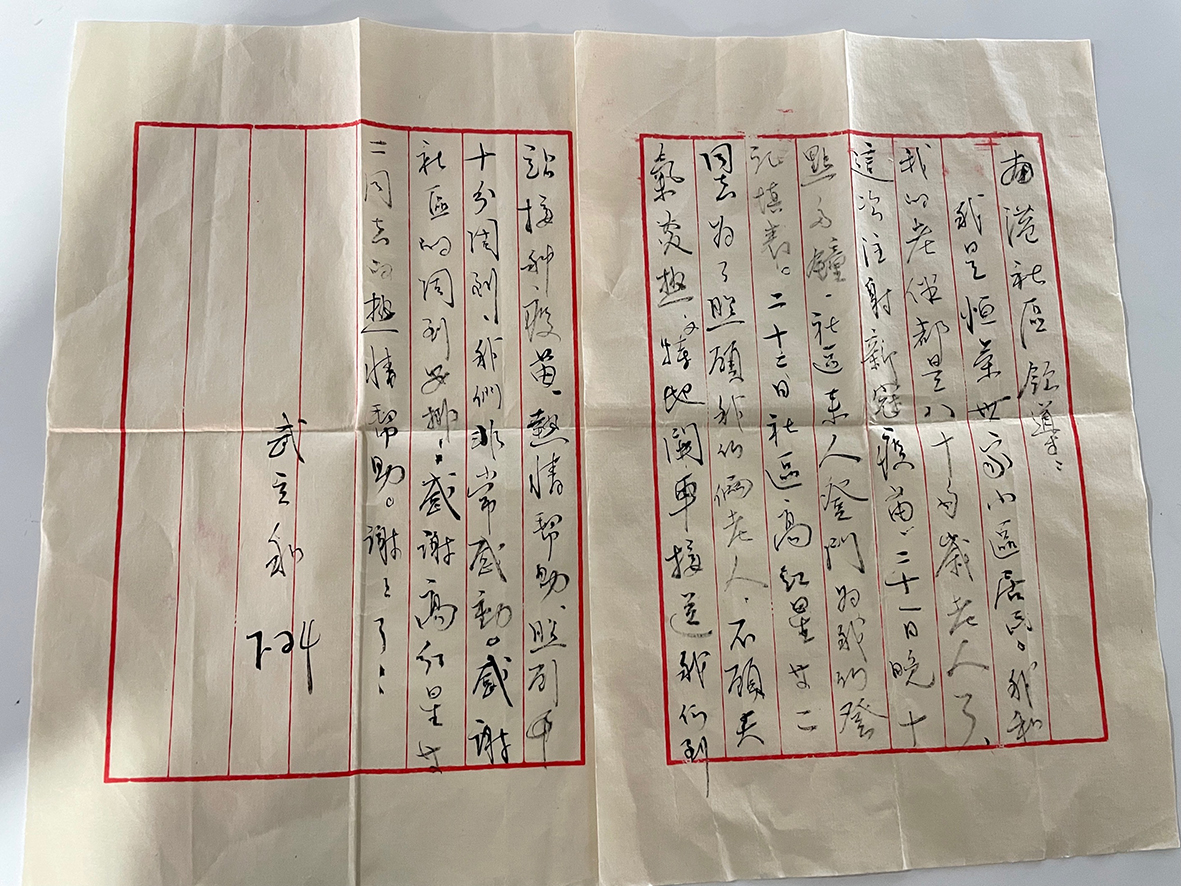 南港社區領導：
我是恒萊世家小區居民。我和
我的老伴都是八十多歲老人了、
這次注射新冠疫苗、二十一日晚十
點多鐘、社區来人登門为我们登
记填表。二十三日社區高红星等二
同志为了照顾我们俩老人、不顾天
氣炎热、特地開車接送我们到
站接种疫苗、熱情幫助、照顾
十分周到、我們非常感動。感謝
社區的周到安排；感謝高红星等
二同志的热情幫助。謝之了！
武立和
7.24